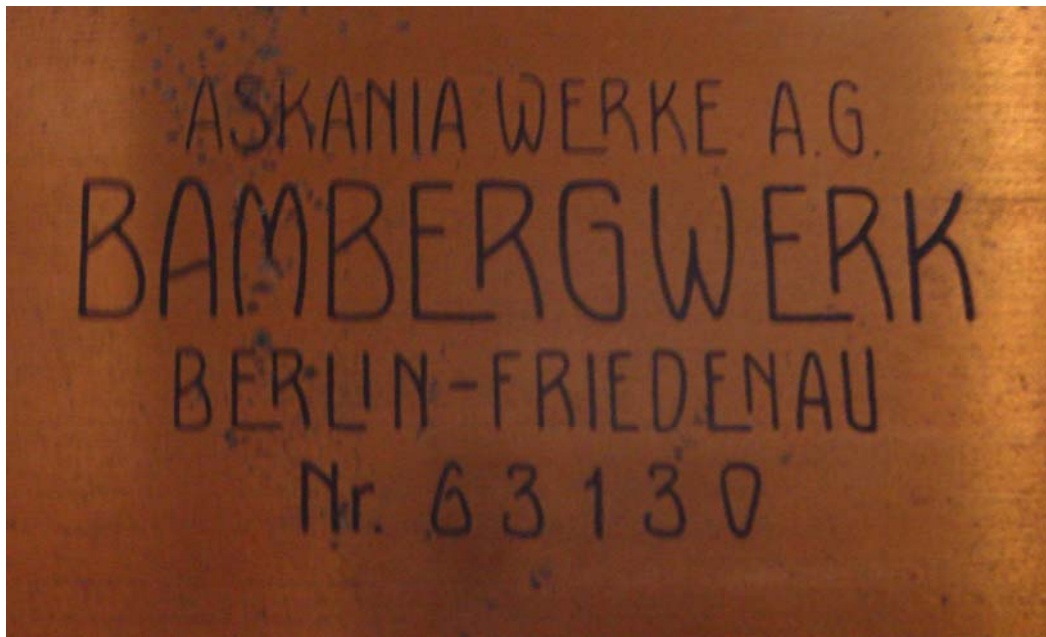 ASKANIA WERKE A.G.
BAMBERGWERK
BERLIN-FRIEDENAU
Nr. 63130